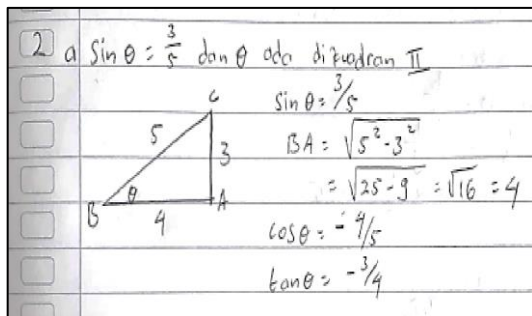 2 a Sin θ = 3/5 dan θ ada dikuadran II
Sin θ = 3/5
C
5
3
B θ A
4
BA = √(5² - 3²)
= √(25 - 9) = √16 = 4
cos θ = -4/5
tan θ = -3/4